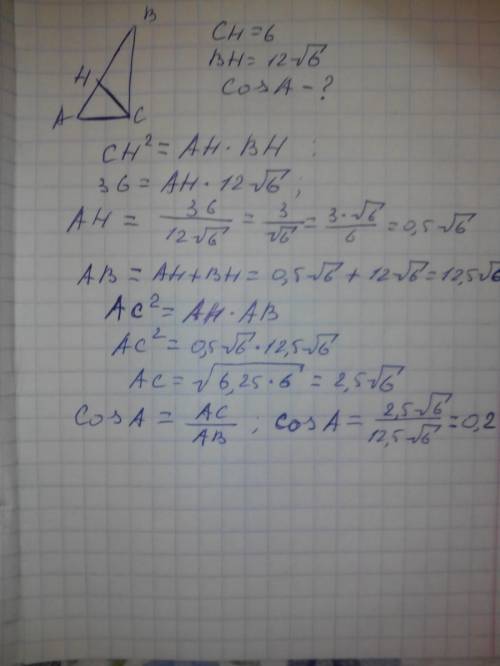 B
H
A
C
CH = 6
BH = 12√6
CosA - ?
CH² = AH · BH ;
36 = AH · 12√6 ;
AH = 36/12√6 = 3/√6 = 3·√6/6 = 0,5√6
AB = AH + BH = 0,5√6 + 12√6 = 12,5√6
AC² = AH · AB
AC² = 0,5√6 · 12,5√6
AC = √6,25·6 = 2,5√6
CosA = AC/AB ; CosA = 2,5√6/12,5√6 = 0,2